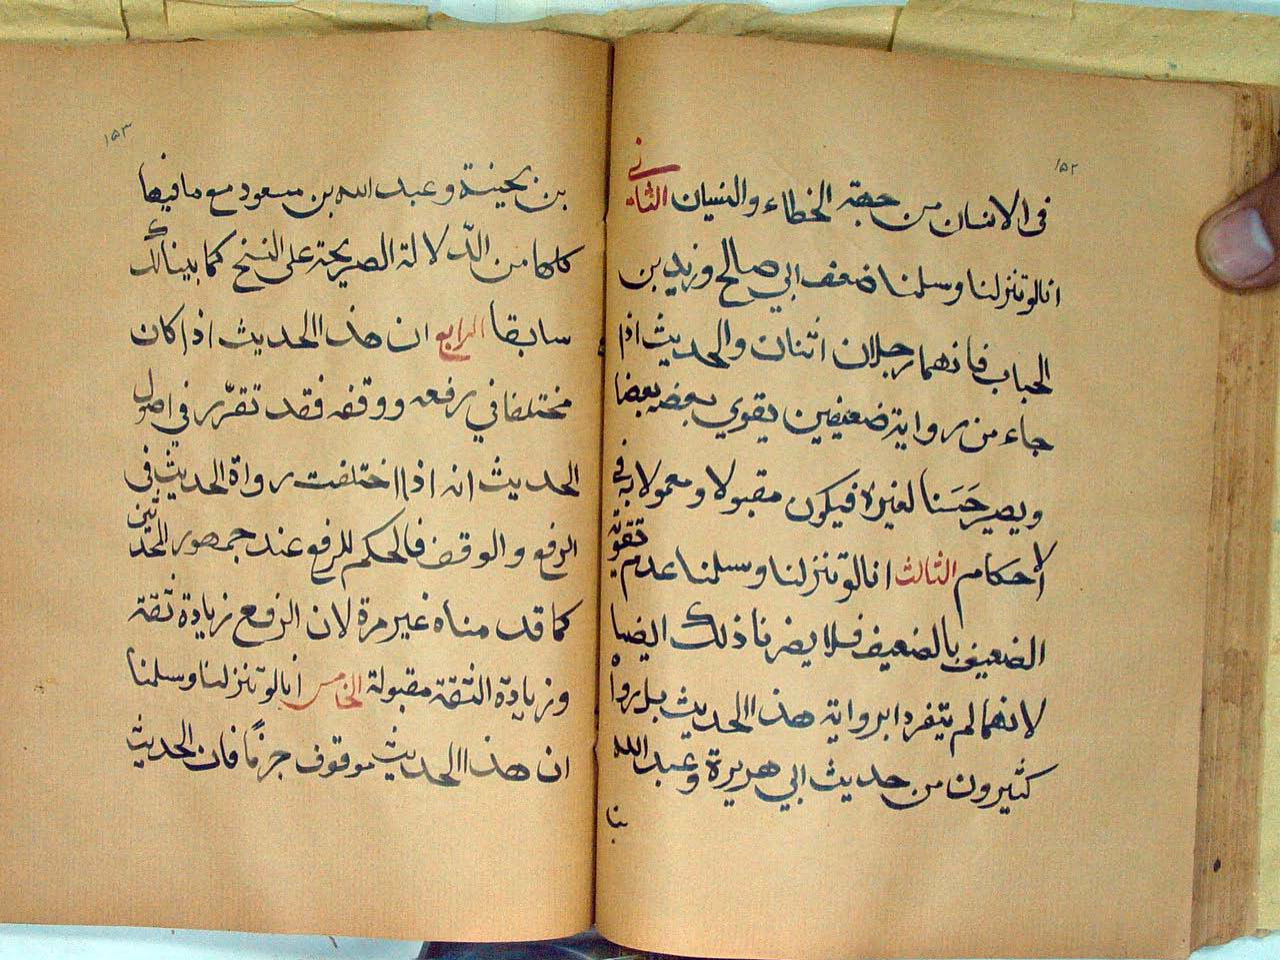 ١٥٢
فى الانسان من جهة الخطاء والنسيان الثانى
انا لو تنزلنا وسلمنا ضعف ابي صالح وزيد بن
الحباب فانهما رجلان اثنان والحديث اذا
جاء من رواية ضعيفين يقوي بعضه بعضا
ويصير حَسَنا لغيره فيكون مقبولا ومعمولا به فى
الاحكام الثالث انا لو تنزلنا وسلمنا عدم تقوية
الضعيف بالضعيف فلا يضرنا ذلك ايضا
لانهما لم يتفردا برواية هذا الحديث بل رواه
كثيرون من حديث ابي هريرة وعبد الله
بن
١٥٣
بن بحينة وعبد الله بن مسعود مع ما فيها
كلها من الدّلالة الصريحة على النسخ كما بينا لك
سابقا الرابع ان هذا الحديث اذا كان
مختلفا في رفعه ووقفه فقد تقرّر في اصول
الحديث انه اذا اختلفت رواة الحديث فى
الرفع والوقف فالحكم للرفع عند جمهور المحدثين
كما قدمناه غير مرة لان الرفع زيادة ثقة
وزيادة الثقة مقبولة الخامس انا لو تنزلنا وسلمنا
ان هذا الحديث موقوف جزمًا فان الحديث